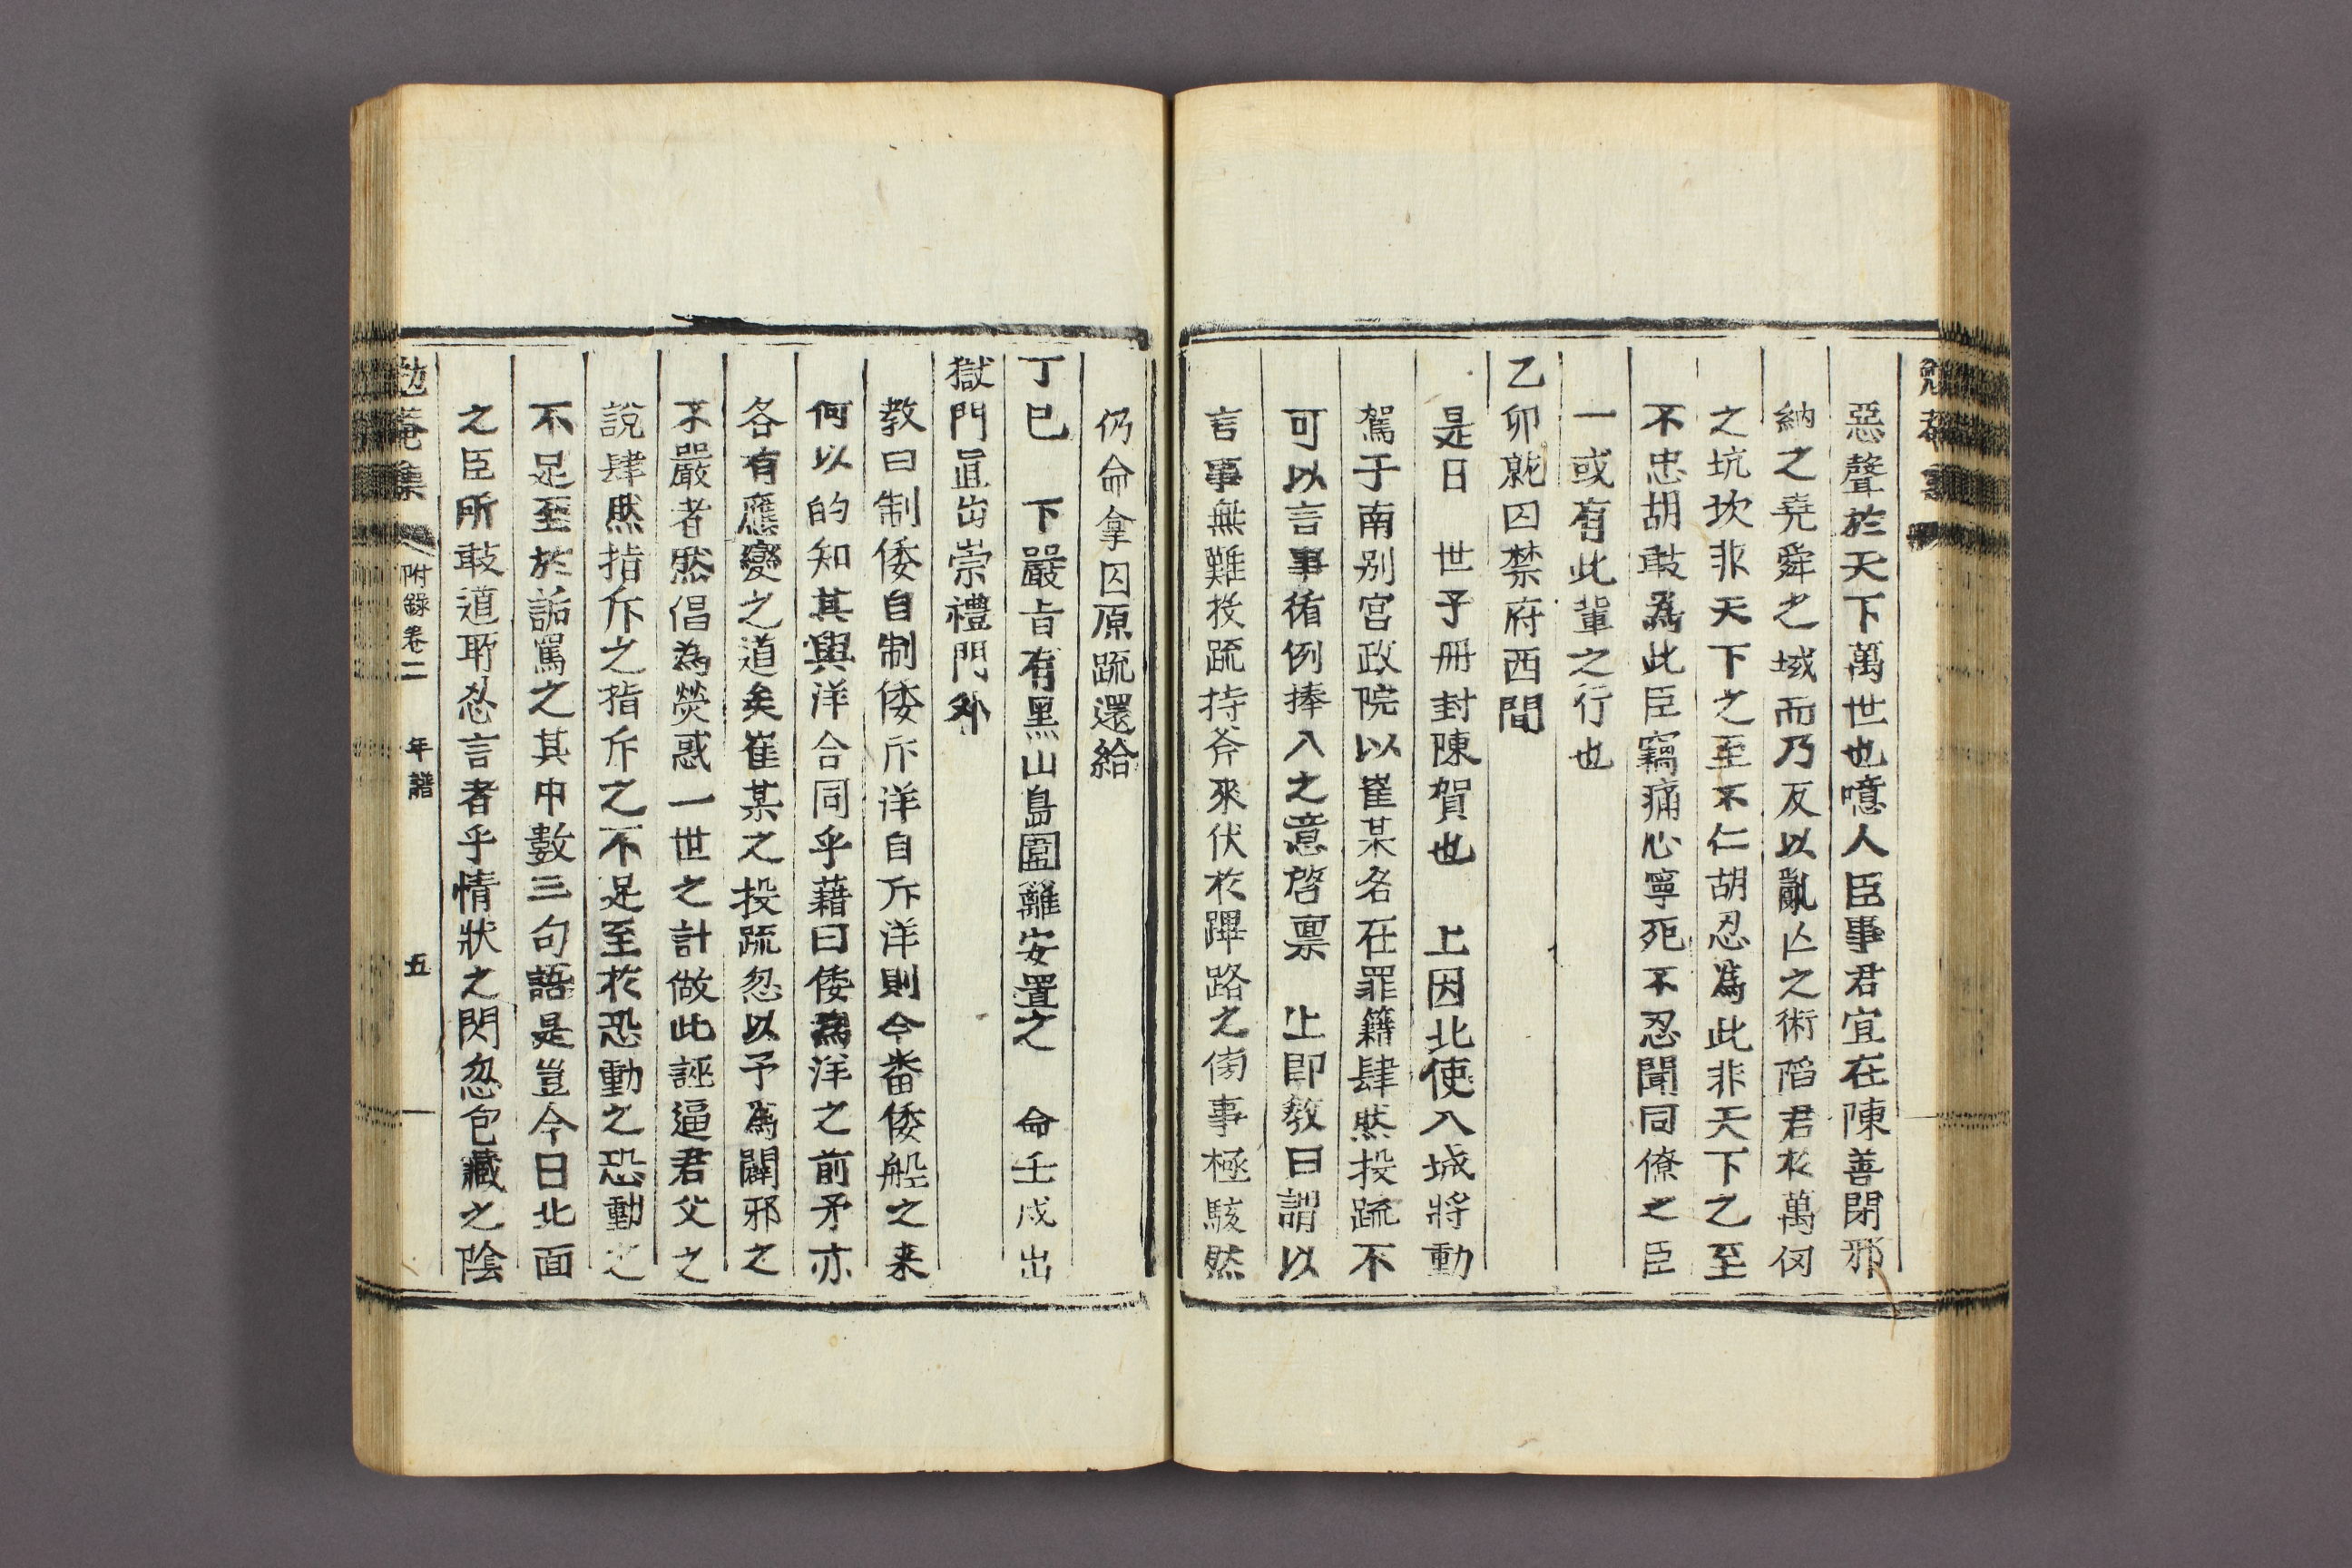 惡聲於天下萬世也噫人臣事君宜在陳善閉邪
納之堯舜之域而乃反以亂亡之術陷君於萬仞
之坑坎非天下之至不仁胡忍爲此非天下之至
不忠胡敢爲此臣竊痛心寧死不忍聞同僚之臣
一或有此輩之行也
乙卯就囚禁府西間
是日 世子冊封陳賀也 上因北使入城將動
駕于南别宮政院以崔某名在罪籍肆然投疏不
可以言事循例捧入之意啓禀 上即敎曰謂以
言事無難投疏持斧來伏於蹕路之傍事極駭然
仍命拿囚原疏還給
丁巳 下嚴旨有黑山島圍籬安置之 命壬戌出
獄門直出崇禮門外
教曰制倭自制倭斥洋自斥洋則今番倭船之来
何以的知其與洋合同乎藉曰倭爲洋之前矛亦
各有應變之道矣崔某之投疏忽以予爲闢邪之
不嚴者然倡為熒惑一世之計做此誣逼君父之
說肆然指斥之指斥之不足至於恐動之恐動之
不足至於詬罵之其中數三句語是豈今日北面
之臣所敢道所忍言者乎情狀之閃忽包藏之陰
勉菴集 附錄卷二 年譜 五